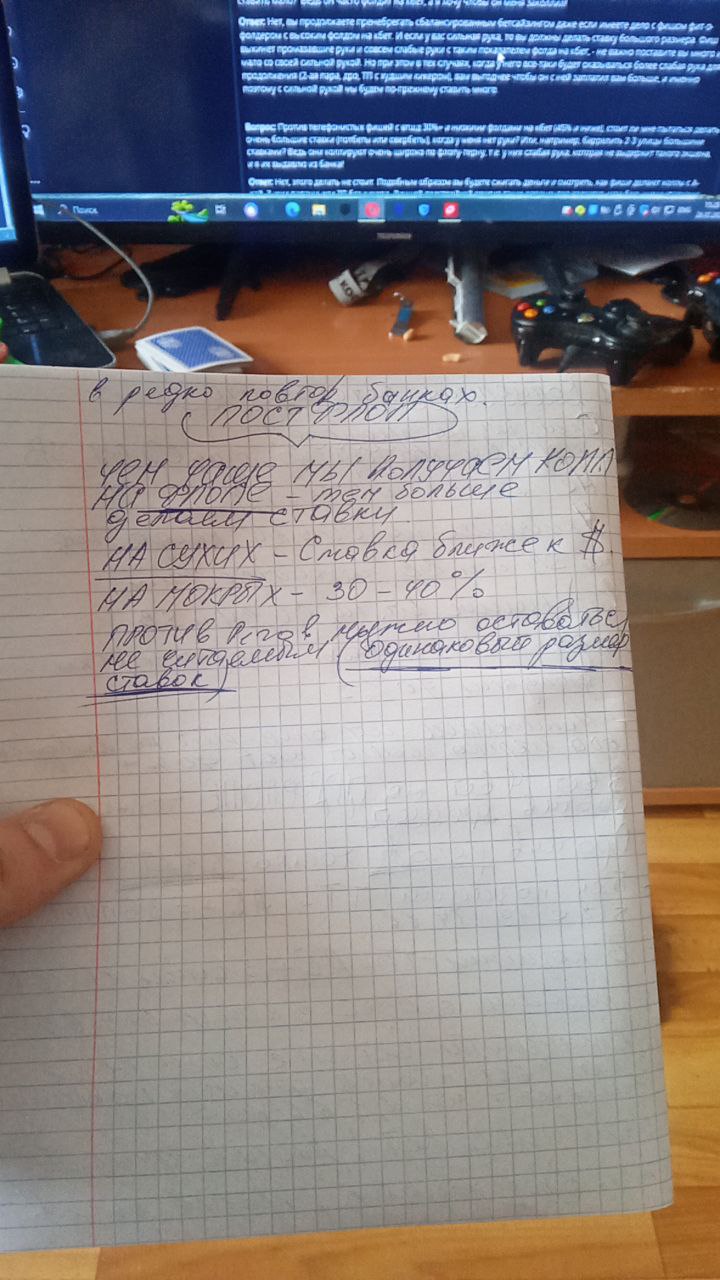 Ответ: Нет, вы продолжаете пренебрегать сбалансированным бетсайзингом даже если имеете дело с фишом фит-о-
фолдером с высоким фолдом на кбет. И если у вас сильная рука, то вы должны делать ставку большого размера. Фиш
выкинет промазавшие руки и совсем слабые руки с таким показателем фолда на кбет, - не важно поставите вы мн
мало со своей сильной рукой. Но при этом в тех случаях, когда у него все-таки будет оказываться более слабая рука для
продолжения (2-ая пара, дро, ТП с худшим кикером), вам выгоднее чтобы он с ней заплатил вам больше, и именно
поэтому с сильной рукой мы будем по-прежнему ставить много.
Вопрос: Против телефонистых фишей с втшд 30%+ и низкими фолдами на кбет (45% и ниже), стоит ли мне пытаться делать
очень большие ставки когда у меня нет руки? Или, например, баррелить 2-3 улицы большими
ставками? Ведь они коллируют очень широко по флопу-терну, т.е. у них слабая рука, которая не выдержит такого экшена
и я их выдавлю из банка!
Ответ: Нет, этого делать не стоит. Подобным образом вы будете сжигать деньги и смотреть, как фиши делают коллы с А-
Поиск
в редко повтор банках.
ПОСТФЛОП
ЧЕМ ЧАЩЕ МЫ ПОЛУЧАЕМ КОЛЛ
НА ФЛОПЕ – тем больше
делаем ставки.
НА СУХИХ – Ставка ближе к $.
НА МОКРЫХ – 30 – 40%
ПРОТИВ Регов нужно оставаться
не читаемым (одинаковый размер
ставок)